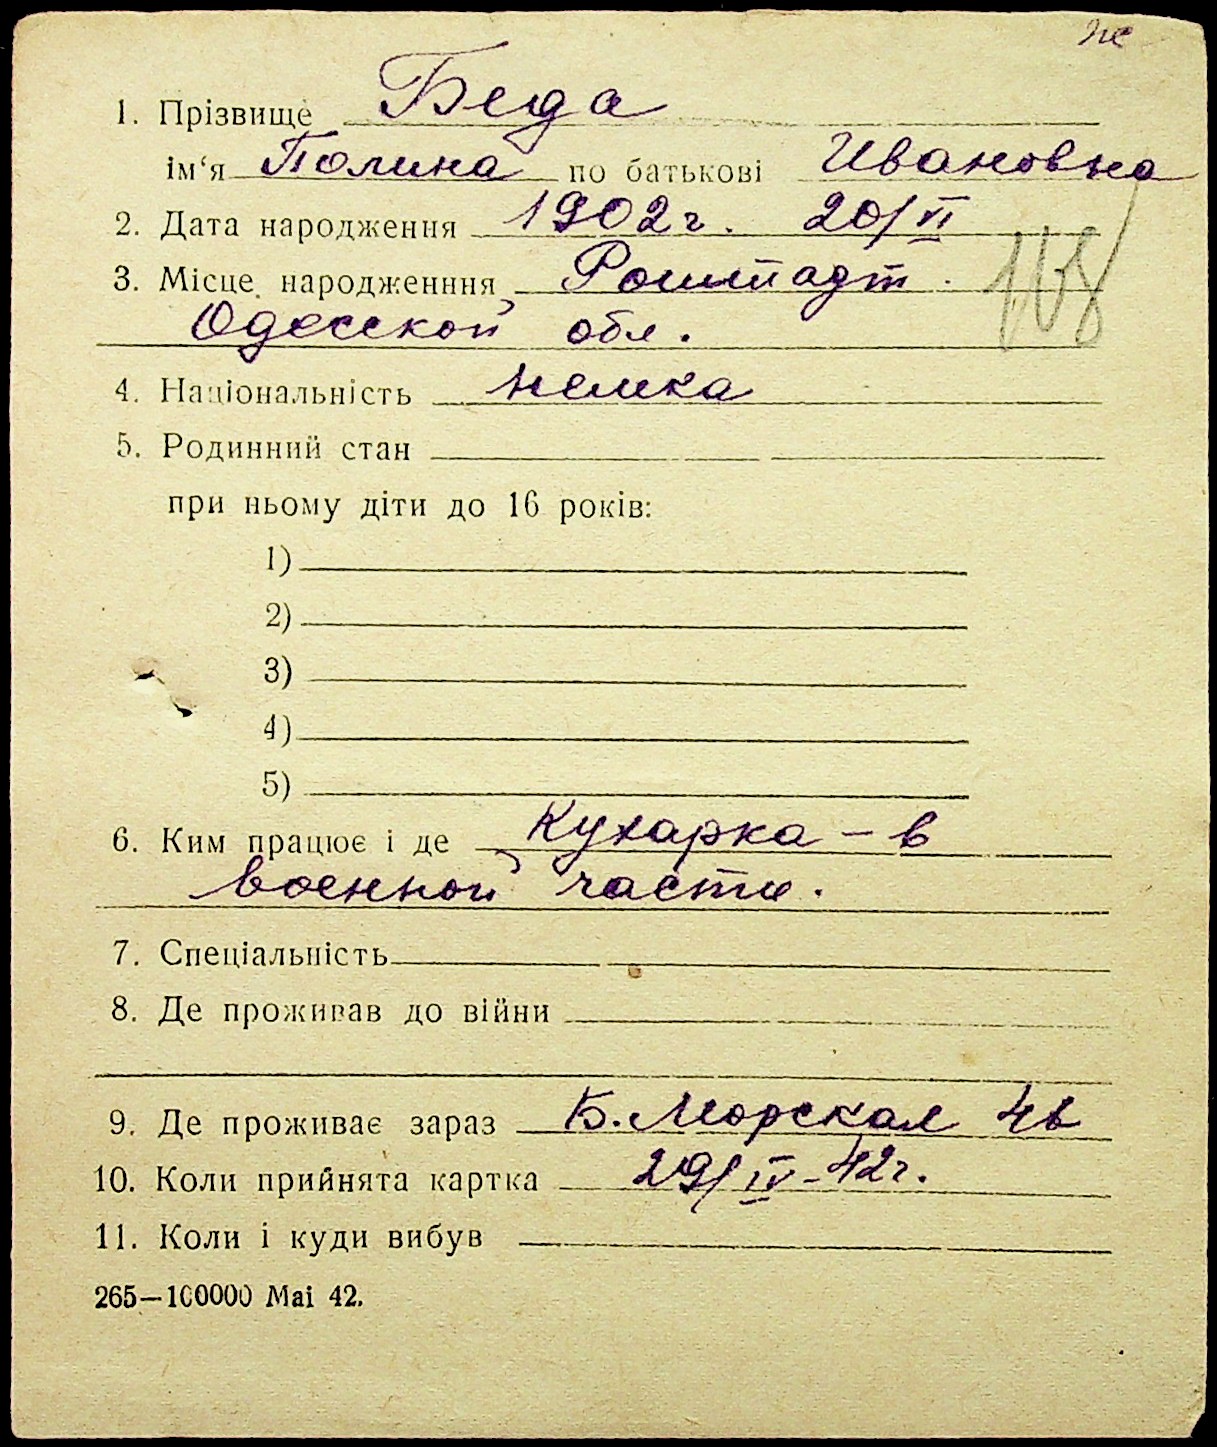 не
1. Прізвище Беда
ім‘я Полина по батькові Ивановна
2. Дата народження 1902 г. 20/VI
3. Місце народженння Рошттадт.
Одесской обл.
108
4. Національність немка
5. Родинний стан
при ньому діти до 16 років:
1)
2)
3)
4)
5)
6. Ким працює і де Кухарка – в
военной части.
7. Спеціальність
8. Де проживав до війни
9. Де проживає зараз Б. Морская 4в
10. Коли прийнята картка 29/IV – 42 г.
11. Коли і куди вибув
265—100000 Mai 42.